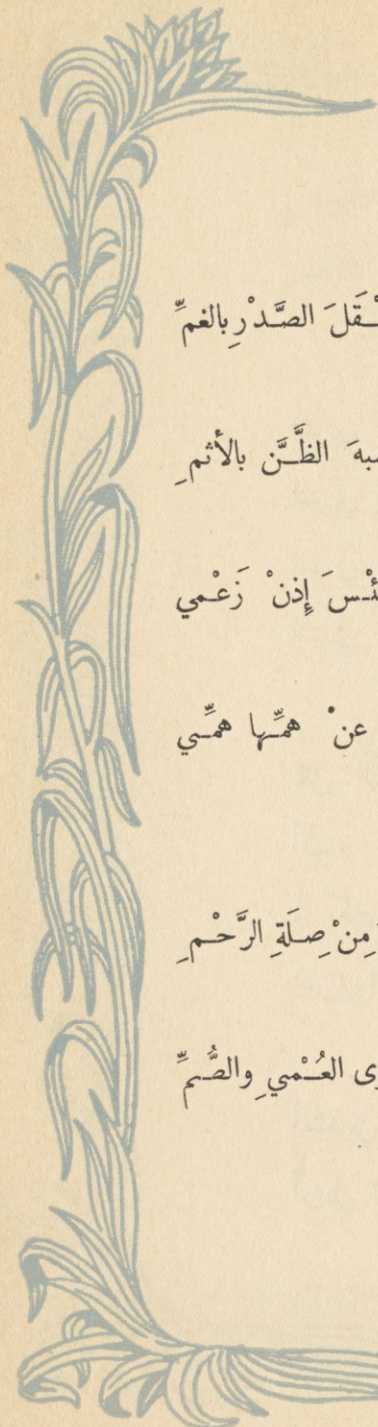 الصَّدْرِ بالغمِّ
الظَّنَّ بالأثمِ
إِذنْ زَعْمي
عنْ همِّها همِّي
مِنْ صِلَةِ الرَّحْمِ
العُمْيِ والصُّمِّ